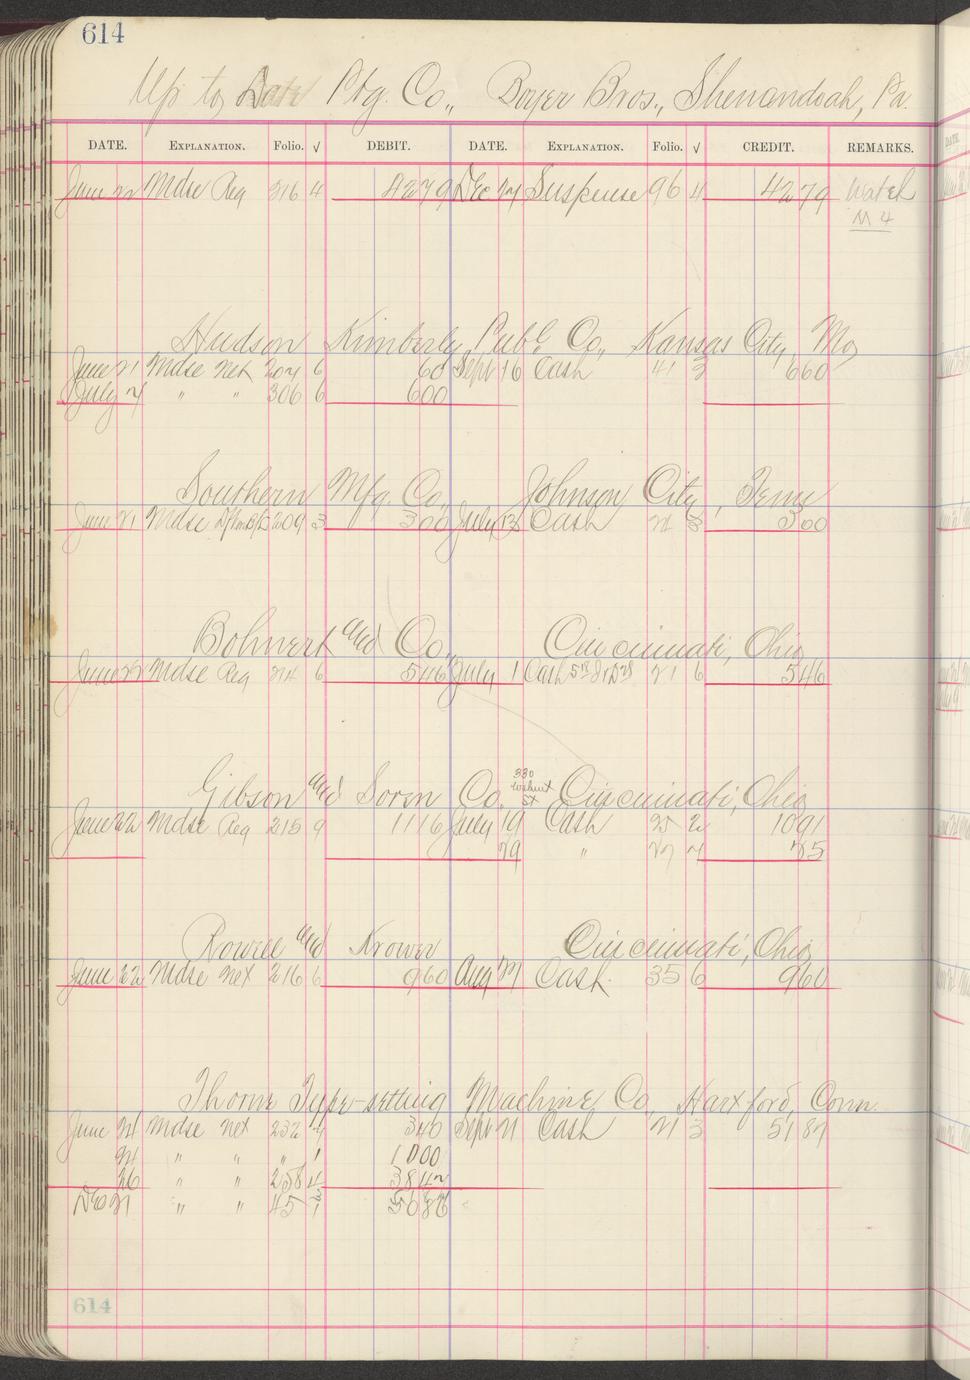 614
Up to Date Ptg. Co., Boyer Bros., Shenandoah, Pa.
DATE. EXPLANATION. Folio. √ DEBIT. DATE. EXPLANATION. Folio. √ CREDIT. REMARKS.
June 22 Mdse Reg 216 4 4279 Dec 27 Suspense 96 4 4279 Watch
M 4
Hudson Kimberly Publ. Co., Kansas City, Mo
June 21 Mdse Net 204 6 60 Sept 16 Cash 41 3 660
July 7 " " 306 6 600
Southern Mfg. Co., Johnson City, Tenn
June 21 Mdse 209 3 300 July 13 Cash 24 8 300
Bohnert and Co., Cincinnati, Ohio
June 22 Mdse Reg 214 6 546 July 1 Cash 21 6 546
Gibson and Sorin Co., 330 Walnut St Cincinnati, Ohio
June 22 Mdse Reg 215 9 1116 July 19 Cash 25 2 1091
29 " 27 7 25
Rowell and Krower Cincinnati, Ohio
June 22 Mdse Net 216 6 960 Aug 27 Cash 35 6 960
Thorne Type-setting Machine Co., Hartford, Conn.
June 24 Mdse Net 232 4 340 Sept 21 Cash 21 3 5182
24 " " " 1 1000
26 " " 258 4 3842
Dec 21 " " 45 5086
614